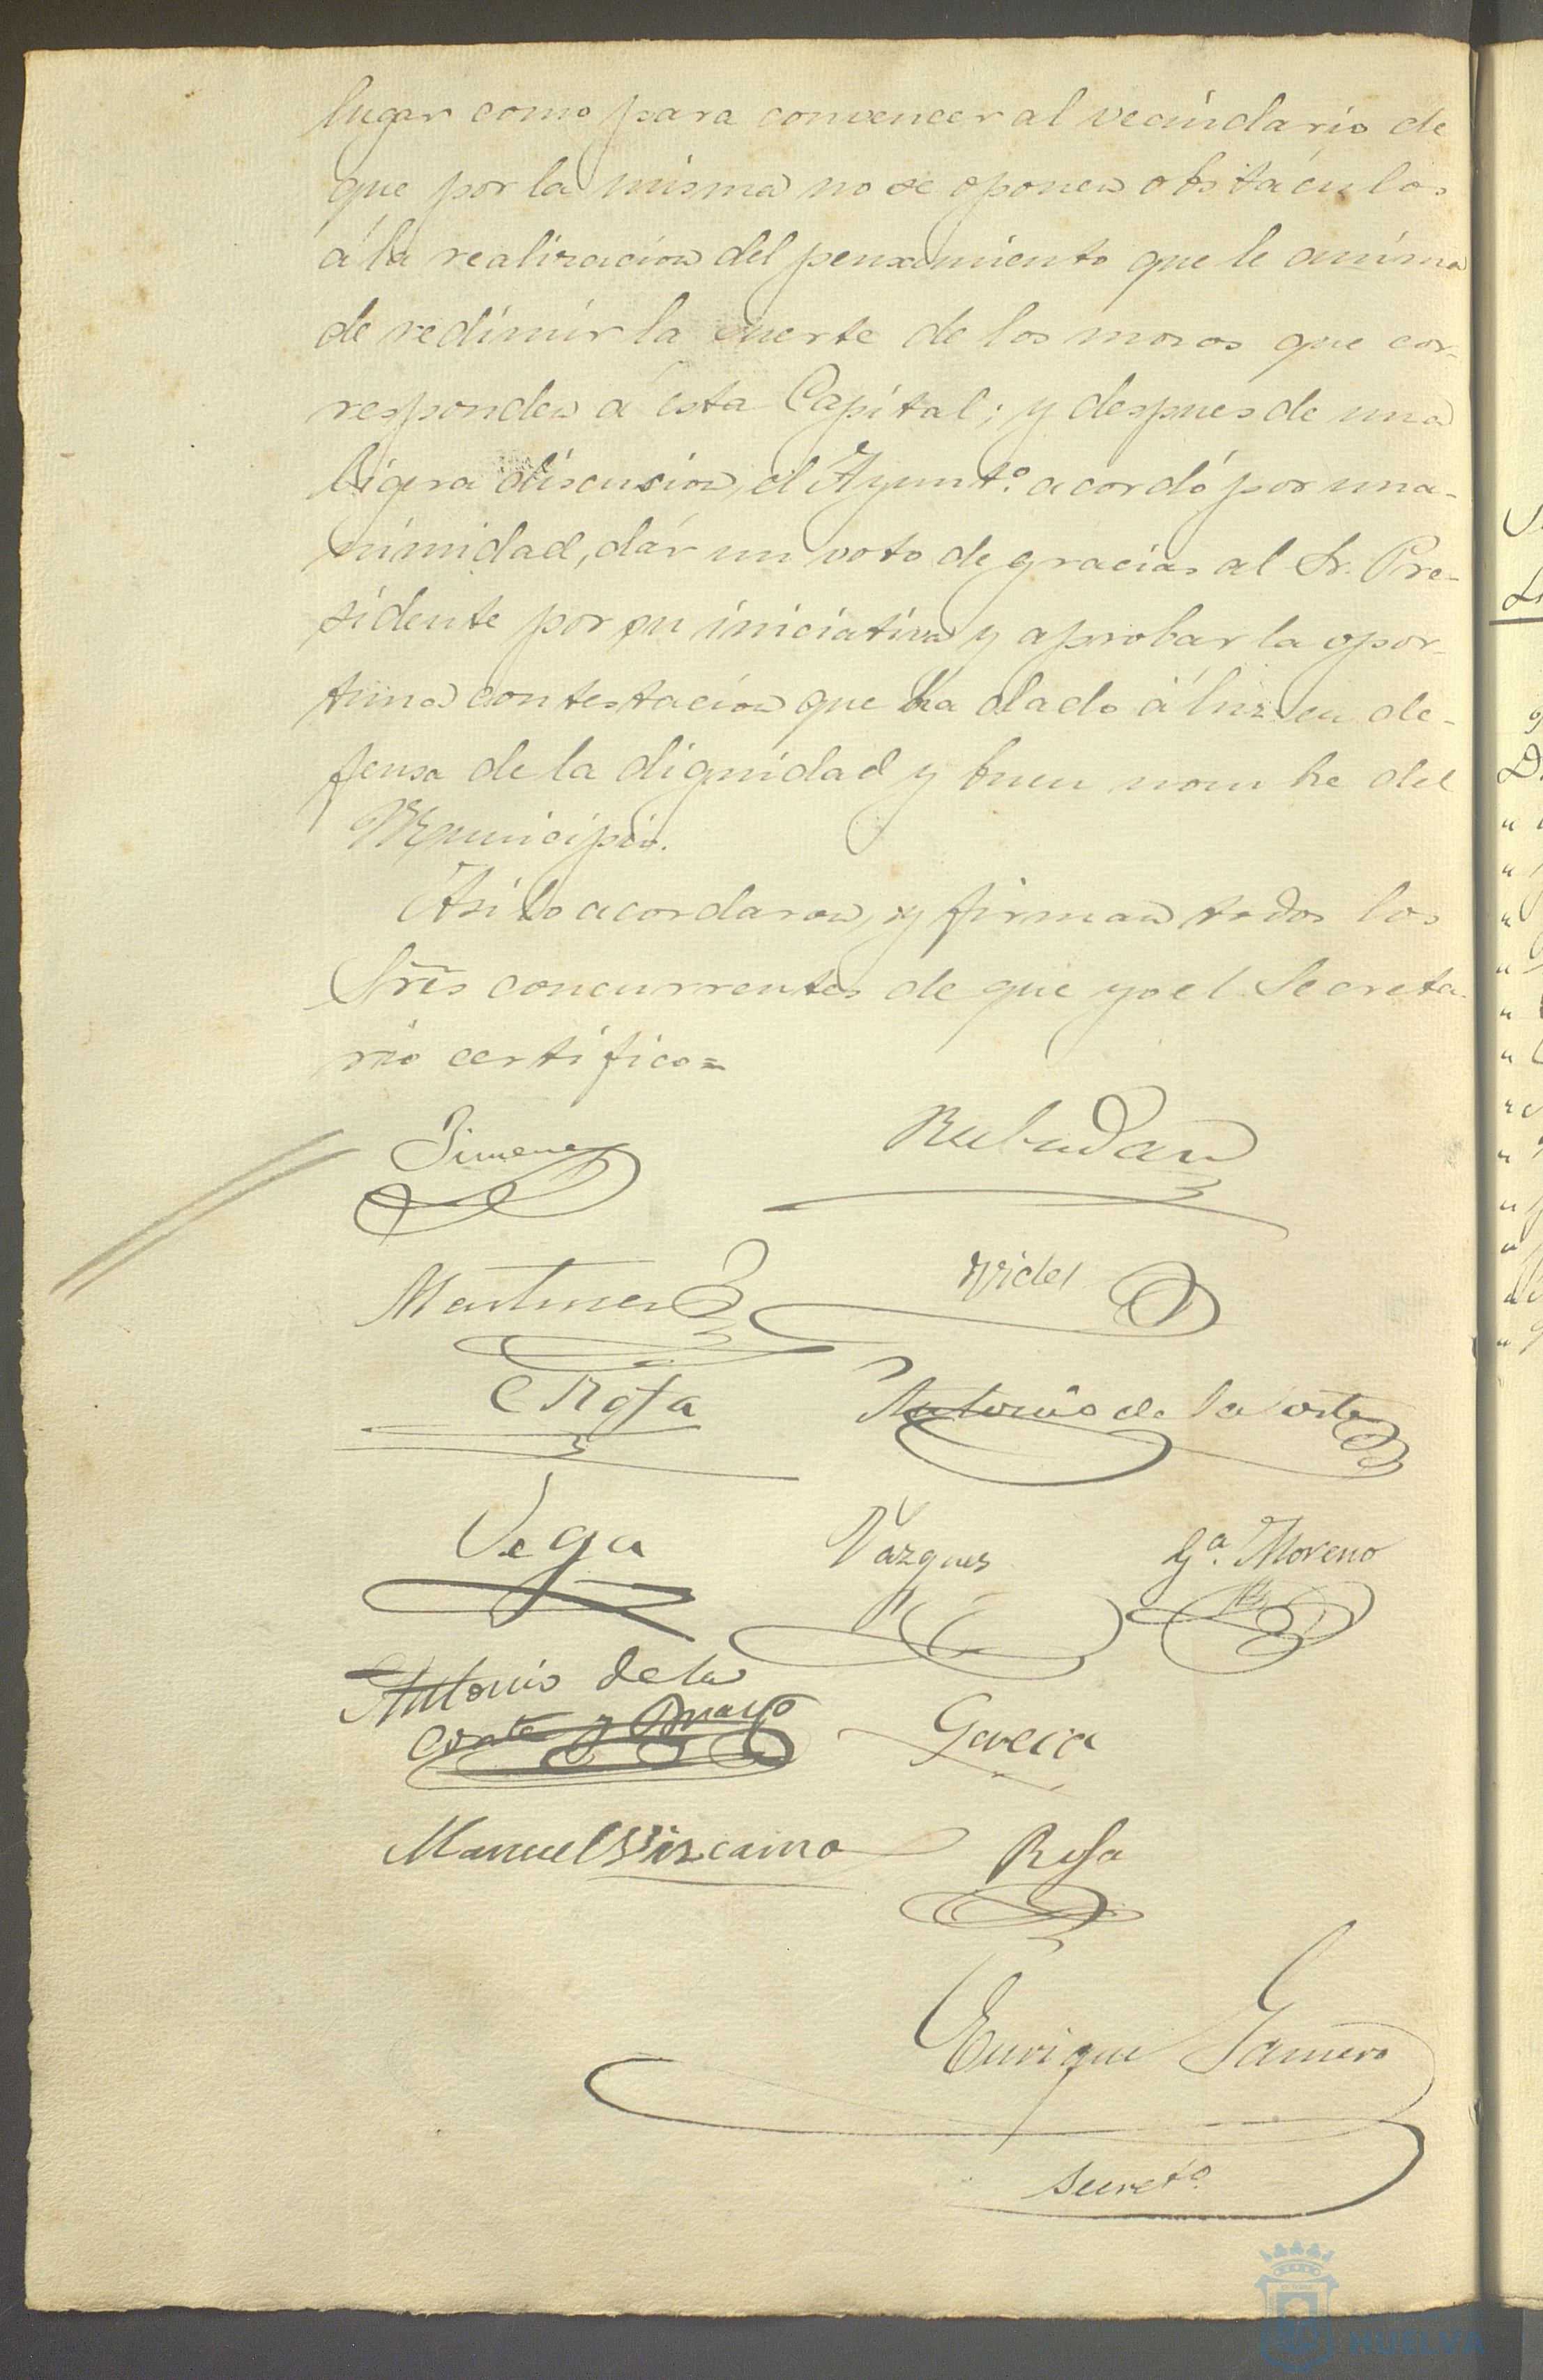 lugar como para convencer al vecindario de
que por la misma no se oponen obstáculos
á la realizacion del pensamiento que le anima
de redimir la suerte de los mozos que cor-
responden á esta Capital; y despues de una
ligera discusion, el Ayuntº. acordó por una-
nimidad, dár un voto de gracias al Sr. Pre-
sidente por su iniciativa y aprobar la opor-
tuna contestacion que ha dado á luz en de-
fensa de la dignidad y buen nombre del
Municipio.
Asi lo acordaron, y firman todos los
Sres concurrentes de que yo el Secreta-
rio certifico=
Jimenez
Martinez
C Rofa
Antonio de la Corte
Vega
Vazquez
Gª. Moreno
Antonio de la
Corte y Bmayo
Garcia
Manuel Vizcaino
Rofa
Enrique Gamero
Secretº.
HUELVA